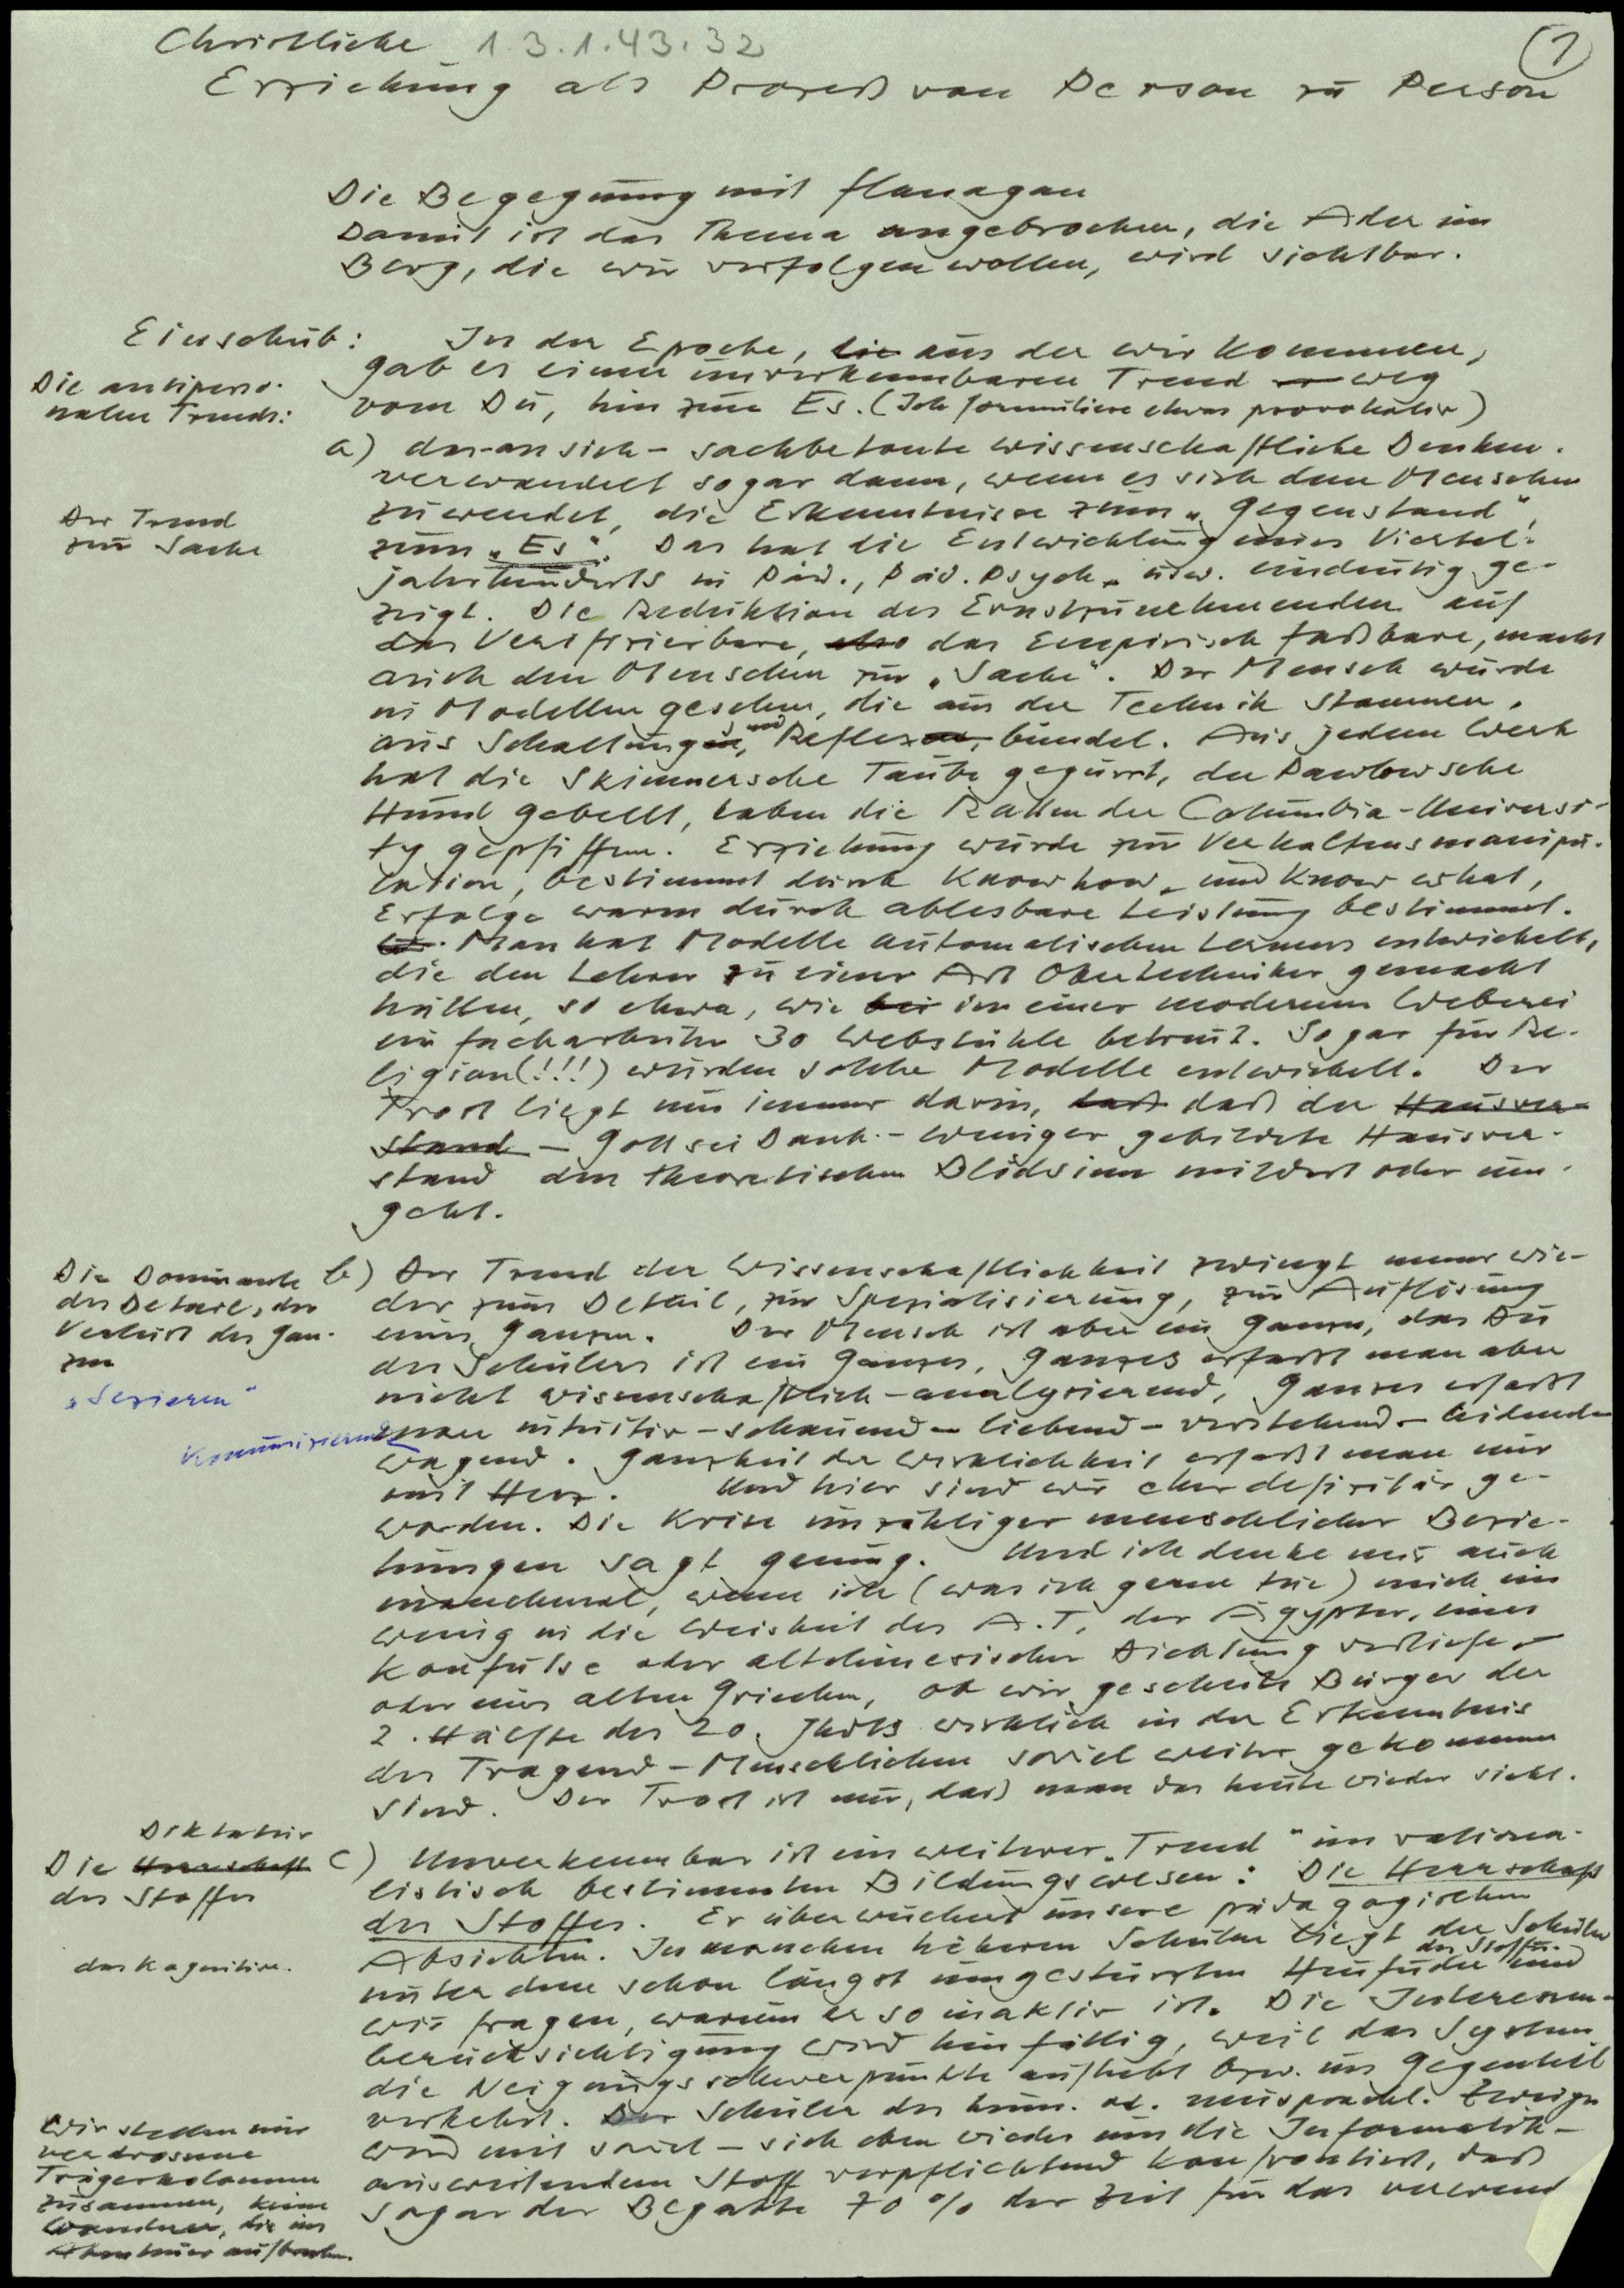 Christliche 1.3.1.43.32
1
Erziehung als Prozeß von Person zu Person
Die Begegnung mit Flanagan
Damit ist das Thema angebrochen, die Ader im
Berg, die wir verfolgen wollen, wird sichtbar.
Einschub:
In der Epoche, die aus der wir kommen,
gab es einen unverkennbaren Trend weg
vom Du, hin zum Es. (Ich formuliere etwas provokativ)
Die antiperso-
nalen Trends:
a) das - an sich - sachbetonte wissenschaftliche Denken
verwandelt sogar dann, wenn es sich dem Menschen
zuwendet, die Erkenntnisse zum "Gegenstand",
zum "Es". Das hat die Entwicklung eines Viertel-
jahrhunderts in Päd., Päd. Psych. usw. eindeutig ge-
zeigt. Die Reduktion des Ernstzunehmenden auf
das Verifizierbare, also das Empirisch faßbare, macht
auch den Menschen zur "Sache". Der Mensch wurde
in Modellen gesehen, die aus der Technik stammen,
aus Schaltungen, und Reflexen, bündel. Aus jedem Werk
hat die Skinnersche Taube gegurrt, der Pawlowsche
Hund gebellt, haben die Ratten der Columbia-Universi-
ty gepfiffen. Erziehung wurde zur Verhaltensmanipu-
lation, bestimmt durch Know how und Know what,
Erfolge waren durch ablesbare Leistung bestimmt.
Man hat Modelle automatischen Lernens entwickelt,
die den Lehrer zu einer Art Obertechniker gemacht
hätten, so etwa, wie bei in einer modernen Weberei
ein Facharbeiter 30 Webstühle betreut. Sogar für Re-
ligion (!!!) wurden solche Modelle entwickelt. Der
Trost liegt nur immer darin, daß daß der Hausver-
stand - Gott sei Dank - weniger gebildete Hausver-
stand den theoretischen Blödsinn mildert oder um-
geht.
Der Trend
zur Sache
Die Dominante
des Details, der
Verlust des Gan-
zen
"Sezieren"
Kommunizierend
b) Der Trend der Wissenschaftlichkeit zwingt immer wie-
der zum Detail, zur Spezialisierung, zur Auflösung
eines Ganzen. Der Mensch ist aber ein Ganzes, das Du
des Schülers ist ein Ganzes. Ganzes erfaßt man aber
nicht wissenschaftlich-analysierend, Ganzes erfaßt
man intuitiv - schauend - liebend - verstehend - leidend -
wagend. Ganzheit der Wirklichkeit erfaßt man nur
mit Herz. Und hier sind wir eher defizitär ge-
worden. Die Krise unzähliger menschlicher Bezie-
hungen sagt genug. Und ich denke mir auch
manchmal, wenn ich (was ich gerne tue) mich ein
wenig in die Weisheit des A.T., der Ägypter, eines
Konfutse oder altchinesischer Dichtung vertiefe,
oder eines alten Griechen, ob wir gescheite Bürger der
2. Hälfte des 20. Jhdts wirklich in der Erkenntnis
des Tragend-Menschlichen soviel weiter gekommen
sind. Der Trost ist nur, daß man das heute wieder sieht.
Diktatur
Die Herrschaft
des Stoffes
das Kognitive.
c) Unverkennbar ist ein weiterer "Trend" im rationa-
listisch bestimmten Bildungswesen: Die Herrschaft
des Stoffes. Er überwuchert unsere pädagogischen
Absichten. In manchen höheren Schulen liegt der Schüler
unter dem schon längst umgestürzten Heufuder des Stoffes und
wir fragen, warum er so inaktiv ist. Die Interessen-
berücksichtigung wird hinfällig, weil das System
die Neigungsschwerpunkte aufhebt bzw. ins Gegenteil
verkehrt. Der Schüler des hum. od. neusprachl. Zweiges
wird mit soviel - sich eben wieder um die Informatik -
ausweitendem Stoff verpflichtend konfrontiert, daß
sogar der Begabte 70% der Zeit für das
Wir stellen nur
verdrossene
Trägerkolonnen
zusammen, keine
Wanderer, die ins
Abenteuer aufbrechen.